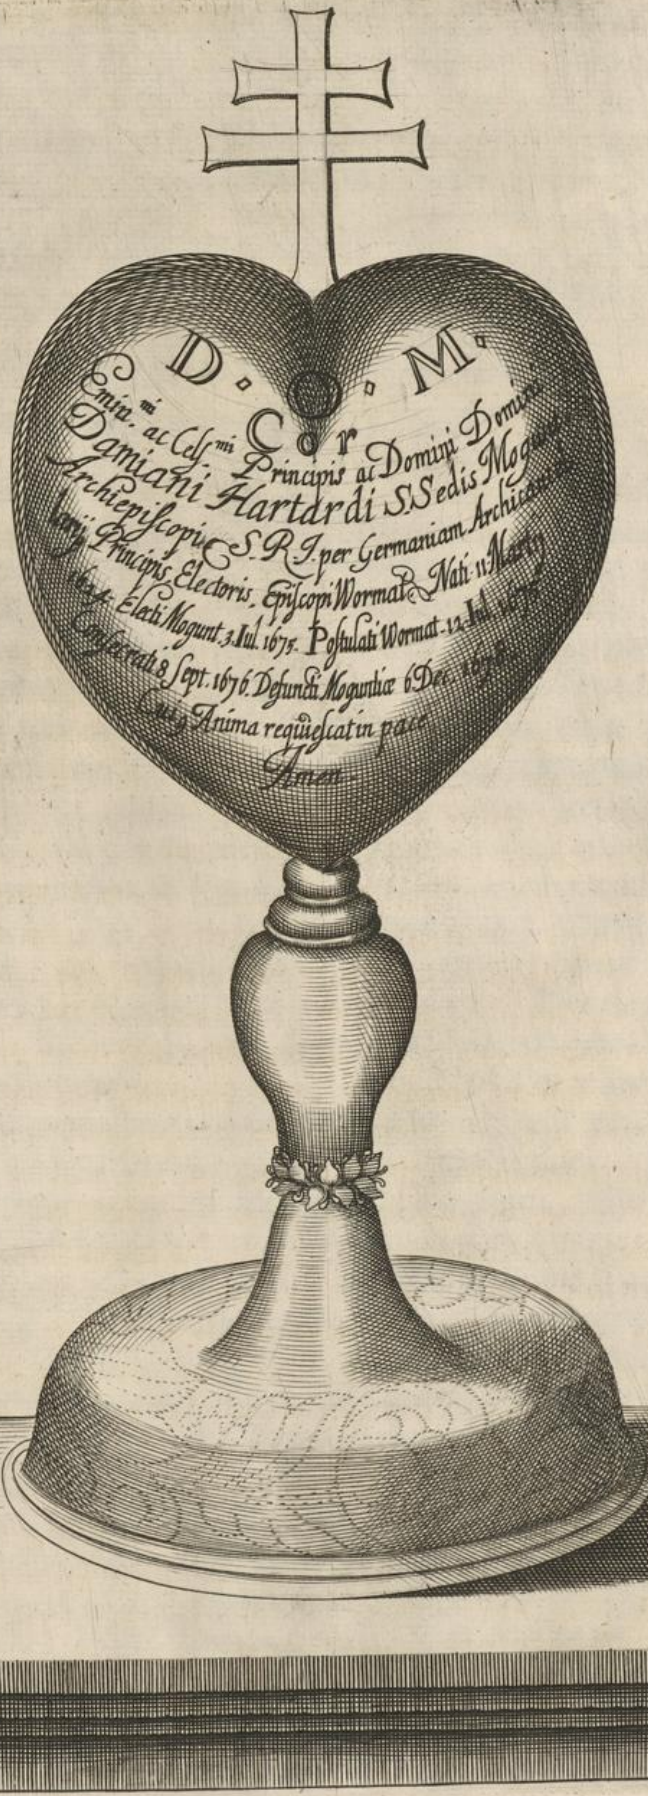 D · O · M ·
Cor
Emin.mi ac Cels.mi Principis ac Domini Domini
Damiani Hartardi S. Sedis Mogunt.
Archiepiscopi S. R. I. per Germaniam Archican
larij Principis Electoris, Episcopi Wormat. Nati 11 Martij
1624. Electi Mogunt. 3. Iul. 1675. Postulati Wormat. 12. Iul. 1676
Consecrati 8 Sept. 1676. Defuncti Moguntiæ 6 Dec. 1678
Cuiꝰ Anima requiescat in pace
Amen.